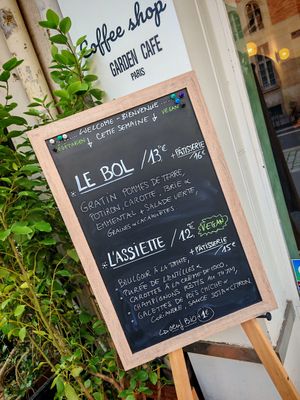 Coffee shop
GARDEN CAFE
PARIS
WELCOME - BIENVENUE
VEGAN
CETTE SEMAINE
LE BOL /13€
+ PÂTISSERIE
/16€
GRATIN POMMES DE TERRE,
POTIRON, CAROTTE, BRIE &
EMMENTAL + SALADE VERTE,
GRAINES & CACAHUÈTES
L'ASSIETTE /12€ VEGAN
+ PÂTISSERIE
/15€
BOULGOUR À LA TOMATE,
PURÉE DE LENTILLES &
CAROTTES À LA CRÈME DE COCO
CHAMPIGNONS RÔTIS AU THYM,
GALETTES DE POIS CHICHE &
CORIANDRE SAUCE SOJA & CITRON
BIO +1€